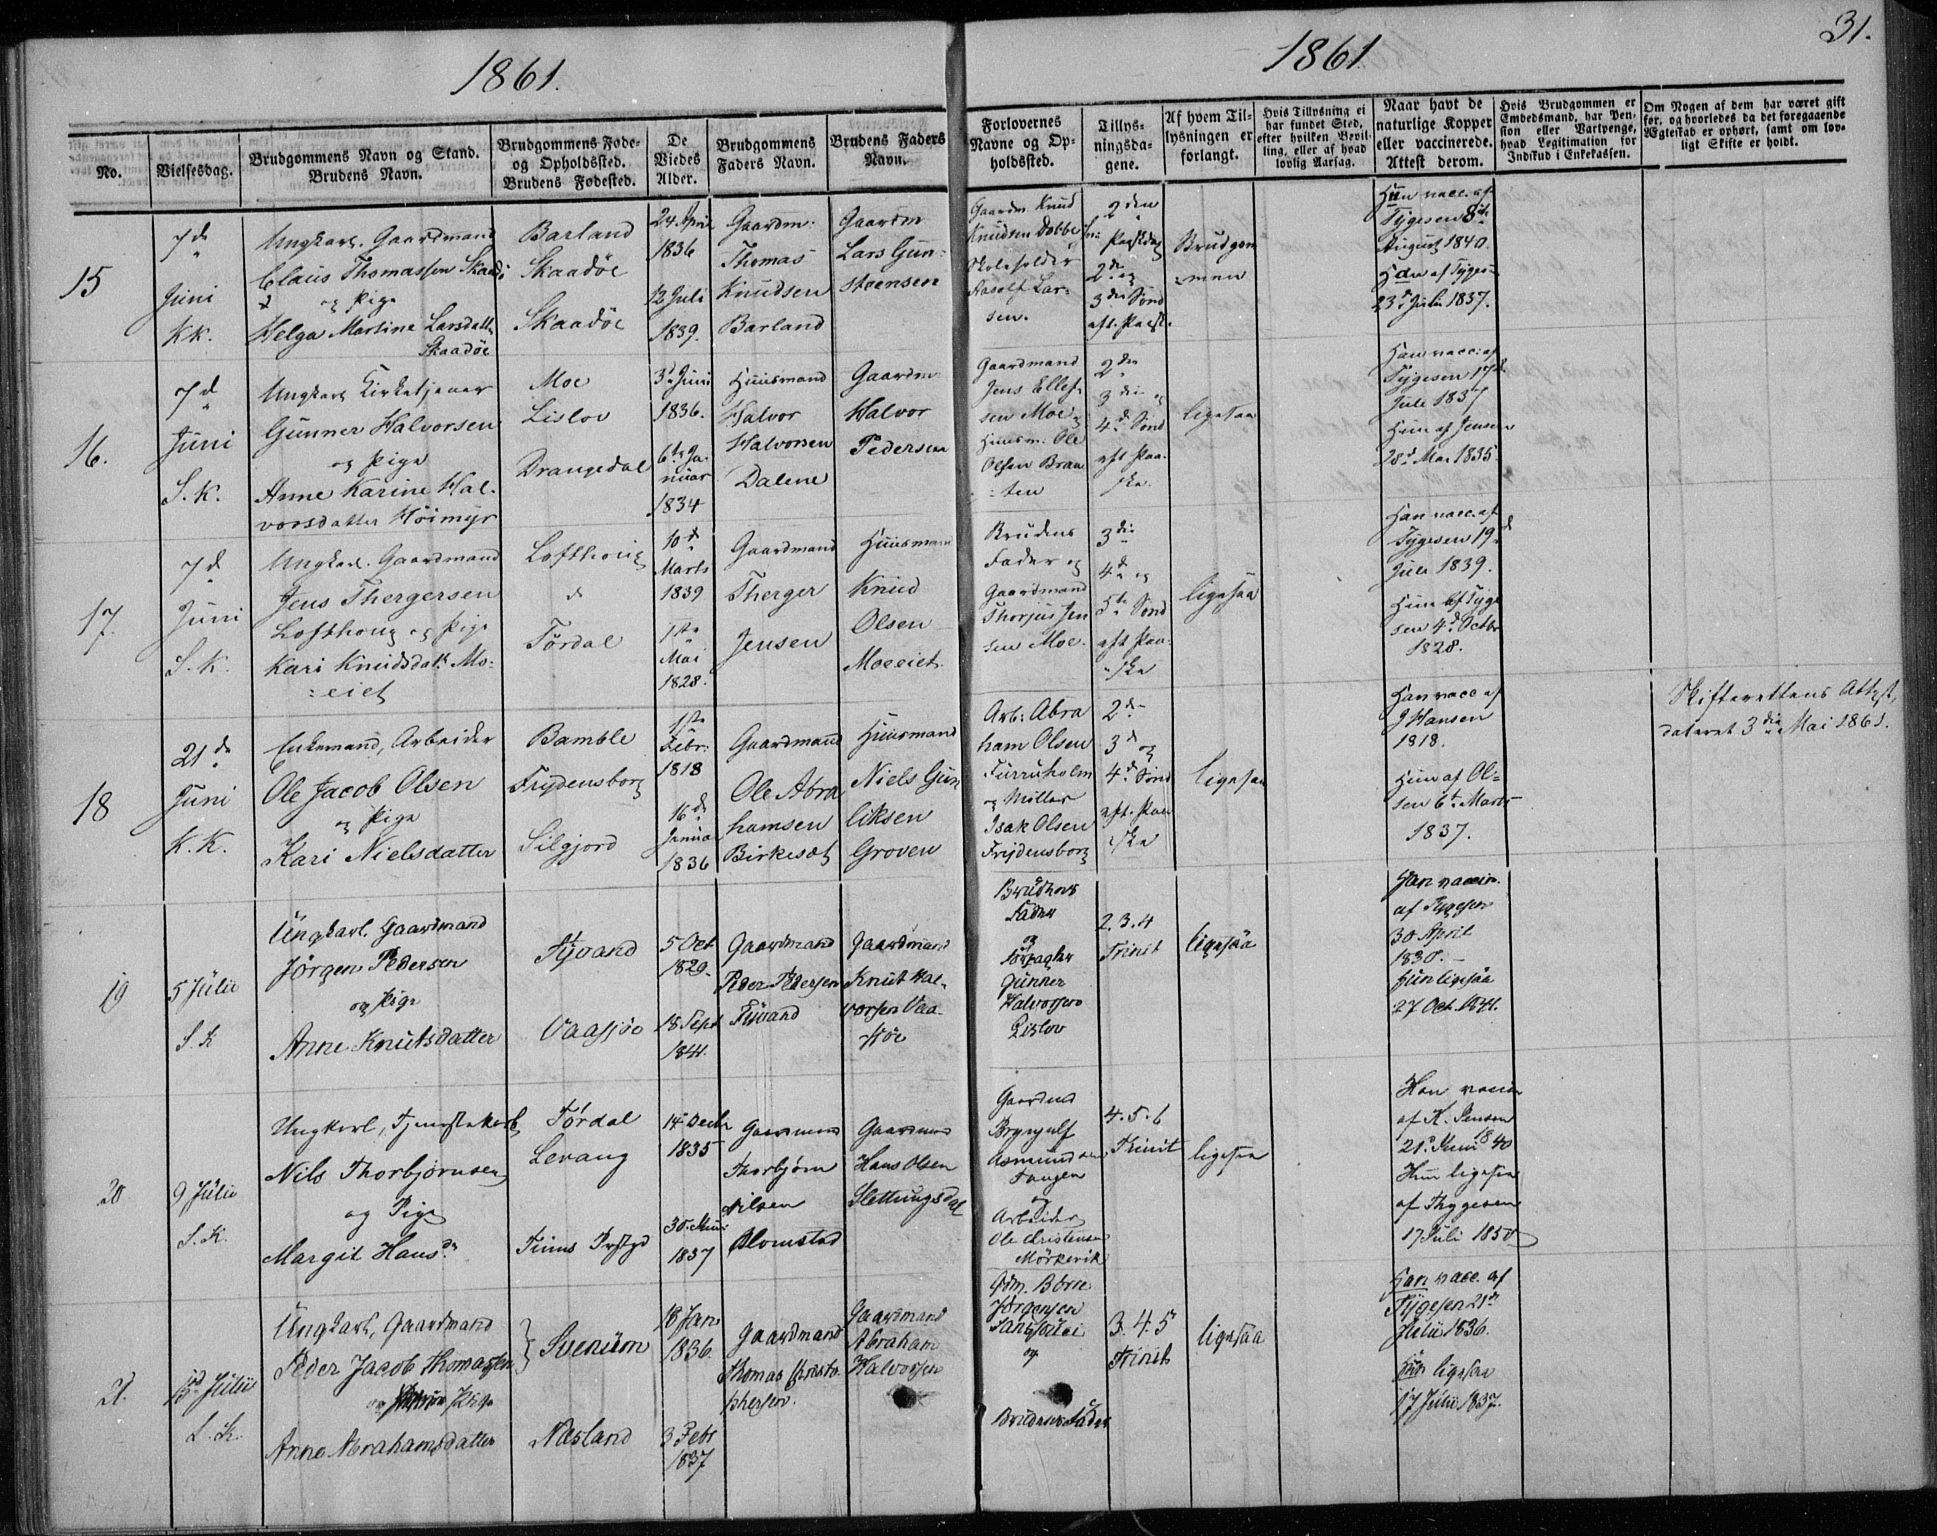 1861.
1861
31.
No.
Vielsesdag.
Brudgommens Navn og Stand.
Brudens Navn.
Brudgommens Føde-
og Opholdssted.
Brudens Fødested.
De
Viedes
Alder.
Brudgommens
Faders Navn.
Brudens Faders
Navn.
Forlovernes
Navne og Op-
holdssted.
Tillys-
ningsda-
gene.
Af hvem Til-
lysningen er
forlangt.
Hvis Tillysning ei
har fundet Sted,
efter hvilken Bevil-
ling, eller af hvad
lovlig Aarsag.
Naar havt de
naturlige Kopper
eller vaccinerede.
Attest derom.
Hvis Brudgommen er
Embedsmand, har Pen-
sion eller Vartpenge,
hvad Legitimation for
Indskud i Enkekassen.
Om Nogen af dem har været gift
før, og hvorledes da det foregaaende
Ægteskab er ophørt, samt om lov-
ligt Skifte er holdt.
15
7d
Juni
KK.
Ungkarl. Gaardmand
Claus Thomassen
og Pige
Helga Martine Larsdatt
Skaadøe
Barland
Skaadøe
Skaadøe
24. April
1836
12 Juli
1839.
Gaardm.
Thomas
Knudsen
Barland
Gaardm
Lars Gun-
stensen
Gaardm Knud
Knudsen Dobbe
Skoleholder
Aasolf Lar-
sen.
2den
Paaskedag
2den og
3die Sønd
aft. Paask.
Brudgom
-men
Han vacc. af
Tygesen 8de
August 1840.
Hun af Tyges-
23d Juli 1837.
16.
7d
Juni
S. K.
Ungkarl Kirketjener
Gunner Halvorsen
og Pige
Anne Karine Hal-
vorsdatter Höimyr
Moe
Lislov
Drangedal
3d Juni
1836.
6te Ja-
nuar
1834
Huusmand
Halvor
Halvorsen
Dalene
Gaardm
Halvor
Pedersen
Gaardmand
Jens Ellef-
sen Moe
Huusm. Ole
Olsen Braa
-ten
2den
3die og
4d Sønd
aft Paa-
ske.
ligesaa
Han vacc. af
Tygesen 17d
Juli 1837
Hun af Jensen
28d Mai 1835
17.
7d
Juni
S. K.
Ungkarl. Gaardmand
Jens Thergersen
Lofthoug og Pige
Kari Knudsdatt. Mo-
-eiet
Lofthoug
Tørdal
10d
Marts
1839
1ste
Mai
1828.
Gaardmand
Therger
Jensen
Huusmand
Knud
Olsen
Moeeiet
Brudens
Fader og
Gaardmand
Thorjus Jen
sen Moe.
3die
4de og
5te Sønd
aft Paa-
ske
ligesaa
Han vacc. af
Tygesen 19d
Juli 1839.
Hun af Tyge
sen 4d Octbr
1828.
18
21d
Juni
K. K.
Enkemand, Arbeider
Ole Jacob Olsen
og Pige
Kari Nielsdatter
Bamble
Frydensborg
Silgjord
1ste
Febr.
1818
16d
Januar
1836
Gaardmand
Ole Abra
hamsen
Birkesæt
Huusmand
Niels Gun
liksen
Groven
Arb. Abra
ham Olsen
Furruholm
og Möller
Isak Olsen
Frydensborg
2den
3d og
4de Sønd
aft. Paa
ske
ligesaa
Han vacc af
J Hansen
1818.
Hun af Ol-
sen 6te Marts
1837.
Skifterettens Attest,
dateret 3die Mai 1861.
19
5 Julii
S. K
Ungkarl. Gaardmand
Jörgen Pedersen
og Pige
Anne Knutsdatter
5 Oct
1829.
18 Sept
1841.
Gaardmand
Peder Pedersen
Gaardmand
Knut Hal-
vorsen Vaa-
Fader
og
Gunner
Halvorsen
Lislov
2. 3. 4
Trinit
ligesaa
Han vaccin.
af Tygesen
30 April
1830.
Hun ligesaa
27 Oct. 1841.
20
9 Julii
S. K.
Ungkarl, Tjenestekarl
Nils Thorbjørnsen
og Pige
Margit Hansd.
Tørdal
Levang
14 Decbr
1835
1837
Gaardmand
Thorbjørn
Nilsen
Blomstad
Gaardmand
Hans Olsen
Slettungsdal
Gaardmd
Brynjulf
Asmundsen
Tangen
og
Arbeider
Ole Christensen
Mörkevik
4. 5. 6
Trinit
ligesaa
Han vaccin
af K. Jensen
21d Juni 1840
Hun ligesaa
af Thygesen
17 Juli 1850
21.
Julii
S. K.
Ungkarl, Gaardmand
Peder Jacob Thomassen
og Pige
Anne Abrahamsdatter
Svenum
Næsland
18 Jan
1836.
3 Febr
1837
Gaardmand
Thomas Christo
phersen.
Gaardmand
Abraham
Halvorsen
Gdm. Börre
Jörgensen
og
Brudens Fader
3. 4. 5
Trinit
ligesaa
Han vacc. af
Tygesen 21d
Julii 1836.
Hun ligesaa
17 Julii 1837.